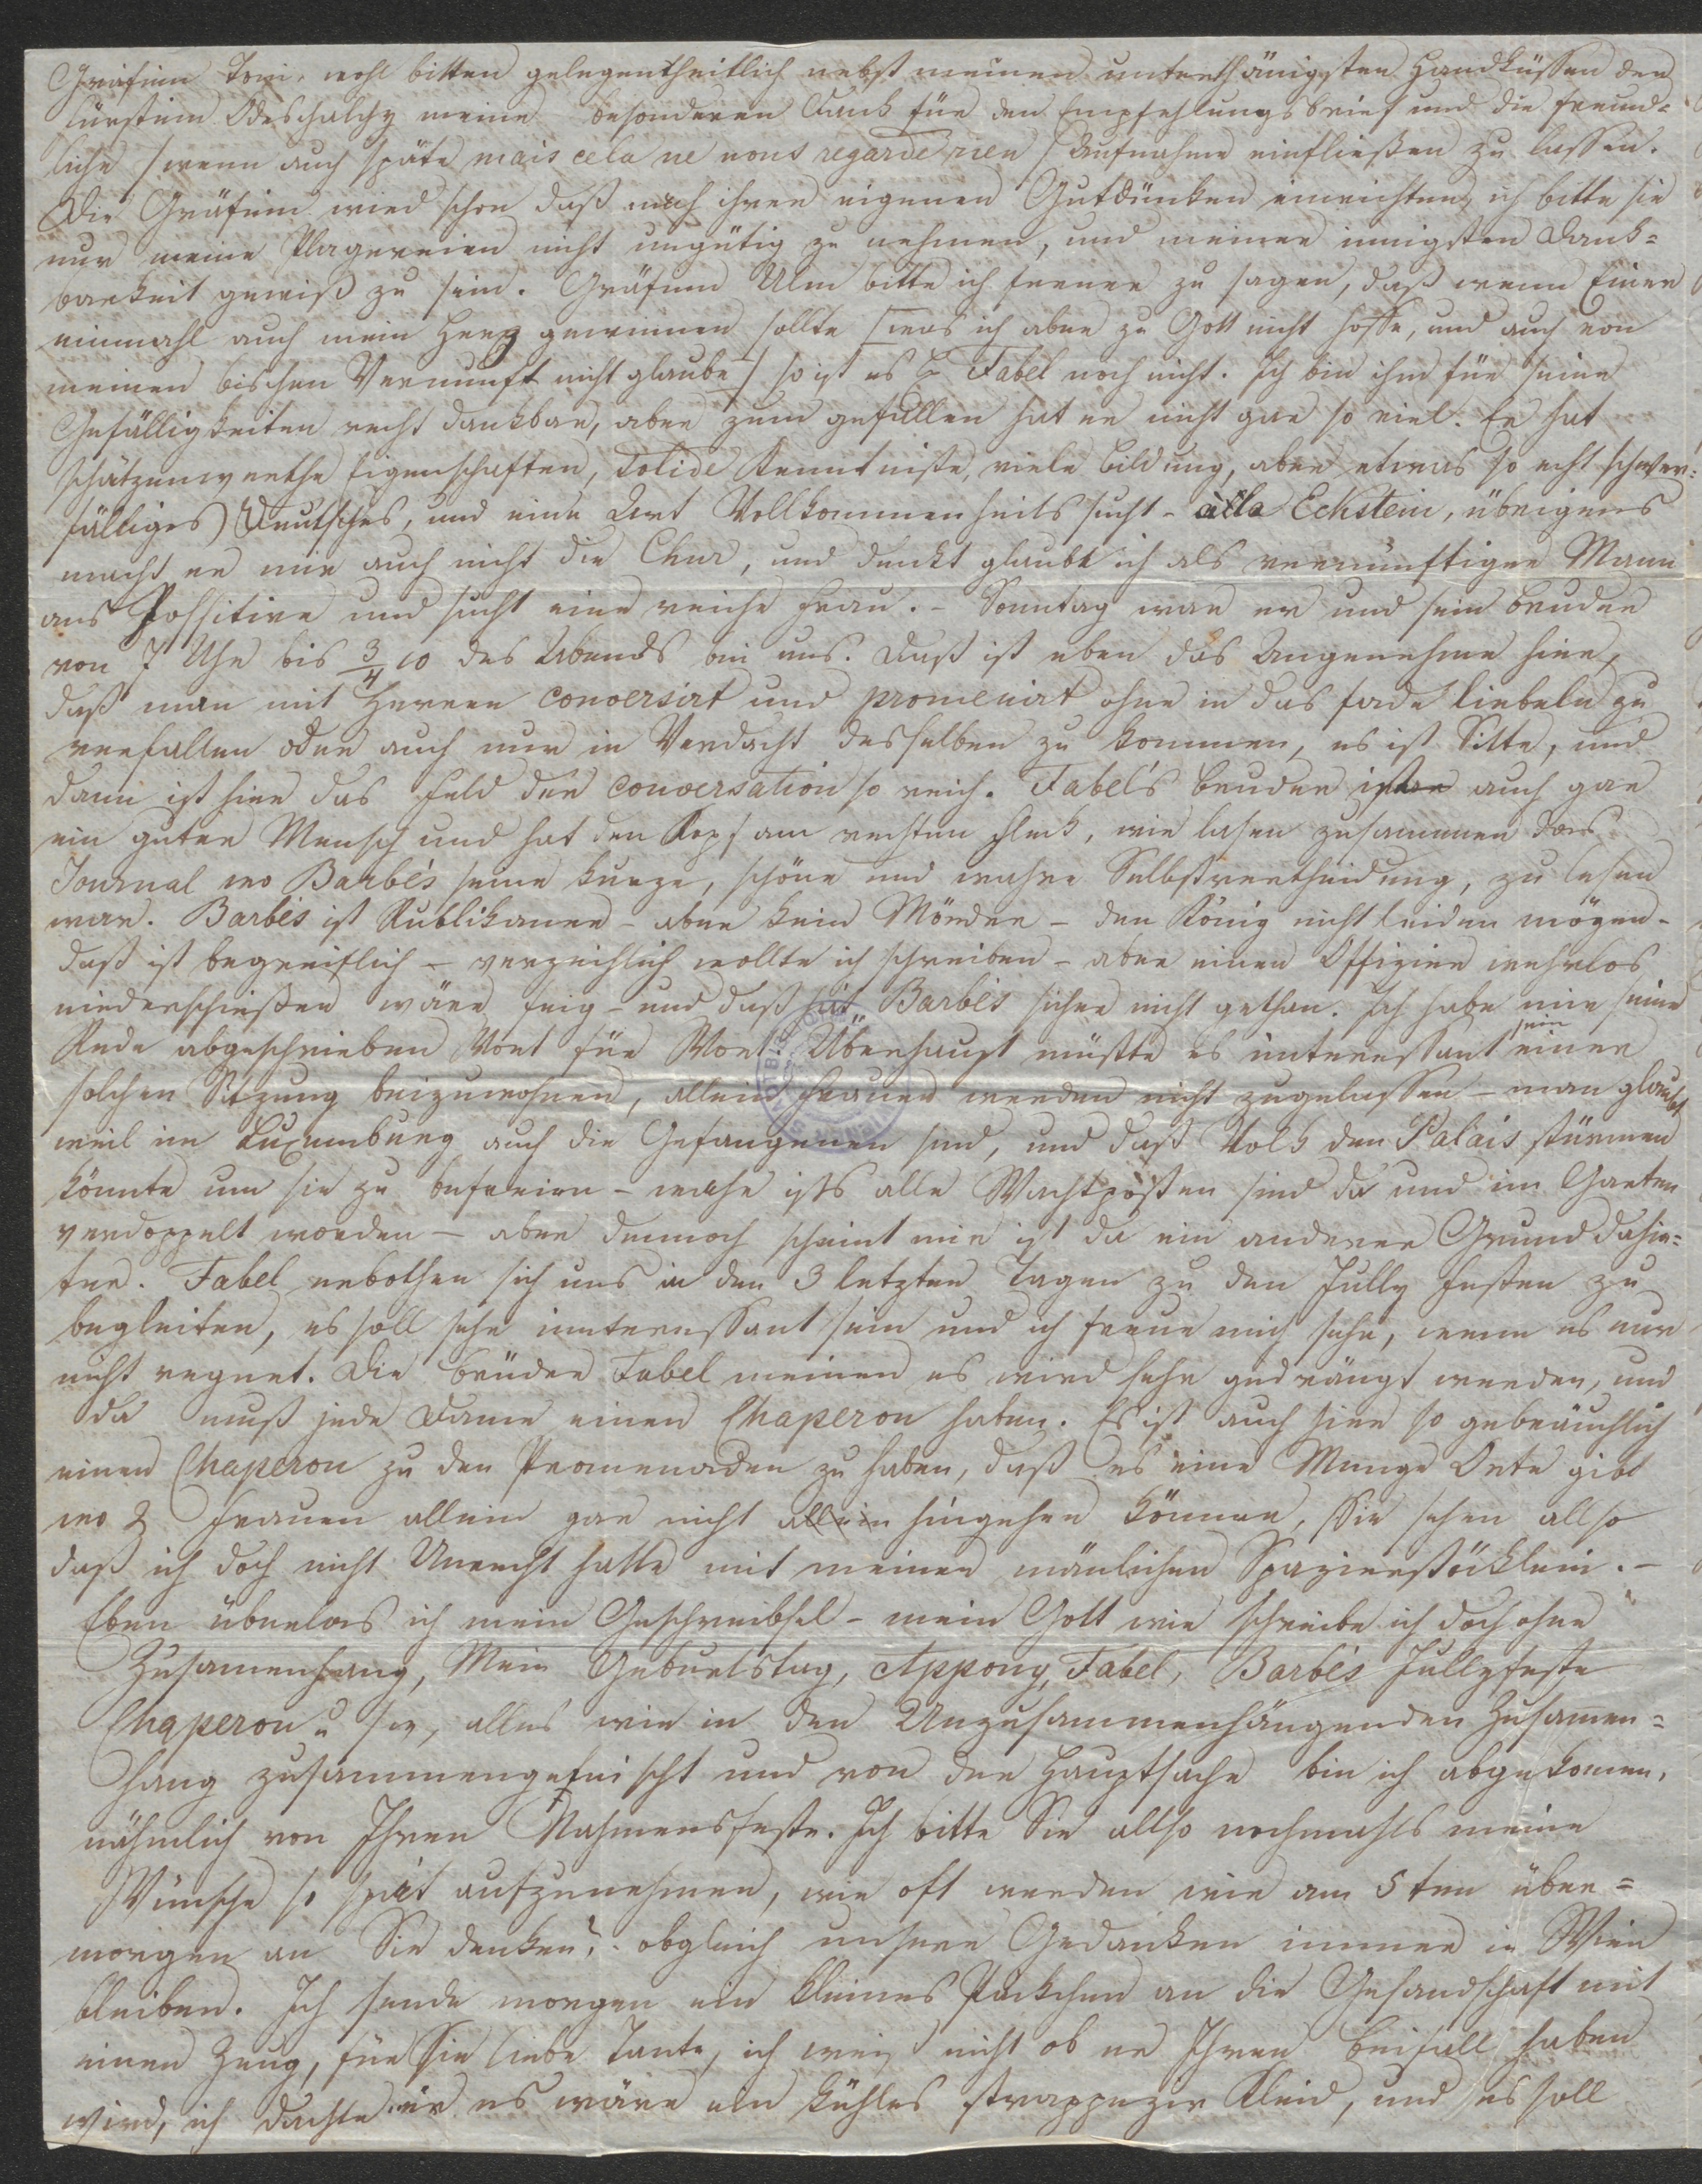 Gräfinn Toni, wohl bitten gelegentheitlich nebst meinen unterthänigsten Handküßen der
Fürstinn Odeschalchy meine besonderen Dank für den Empfehlungsbrief und die freund=
liche /wenn auch späte mais cela ne nous regarde rien/ Aufnahme einfließen zu lassen.
Die Gräfinn wird schon daß nach ihren eigenen Gutdünken einrichten, ich bitte sie
nur meine Plagereien nicht ungütig zu nehmen, und meiner innigsten Dank=
barkeit gewiß zu sein. Gräfinn Ulm bitte ich ferner zu sagen, daß wenn Einer
einmahl auch mein Herz gewinnen sollte /was ich aber zu Gott nicht hoffe, und auch von
meinen bischen Vernunft nicht glaube/ so ist es H Fabel noch nicht. Ich bin ihm für seine
Gefälligkeiten recht dankbar, aber zum gefallen hat er nicht gar so viel. Er hat
schätzenwerthe Eigenschaften, solide Kenntniße, viele Bildung, aber etwas so echt schwer=
fälliges Deutsches, und eine Art Vollkommenheitssucht - alla Eckstein, übrigens
macht er mir auch nicht die Chur, und denkt glaube ich als vernünftiger Mann
ans Possitive und sucht eine reiche Frau. - Sonntag war er und sein Bruder
von 7 Uhr bis 3/4 10 des Abends bei uns. Daß ist eben das Angenehme hier,
daß man mit Herren conversirt und promenirt ohne in das fade liebeln zu
verfallen oder auch nur in Verdacht desselben zu kommen, es ist Sitte, und
dann ist hier das Feld der conversation so reich. Fabel's Bruder ist auch gar
ein guter Mensch und hat den Kopf am rechten Fleck, wir lasen zusammen das
Journal wo Barbés seine kurze, schöne und wahre Selbstvertheidung, zu lesen
war. Barbés ist Rublikaner - aber kein Mörder - den König nicht leiden mögen -
daß ist begreiflich - verzeihlich wollte ich schreiben - aber einen Offizier wehrlos
niederschießen wäre feig - und daß hat Barbés sicher nicht gethan. Ich habe mir seine
Rede abgeschrieben Wort für Wort. Überhaupt müßte es interessant sein einer
solchen Sitzung beizuwohnen, allein Frauen werden nicht zugelassen - man glaubt
weil im Luxemburg auch die Gefangenen sind, und daß Volk den Palais stürmen
könnte um sie zu befreien - wahr ists alle Wachtposten sind da und im Garten
verdoppelt worden - aber dennoch scheint mir ist da ein anderer Grund dahin=
ter. Fabel erbothen sich uns in den 3 letzten Tagen zu den Jully Festen zu
begleiten, es soll sehr interessant sein und ich freue mich sehr, wenn es nur
nicht regnet. Die Brüder Fabel meinen es wird sehr gedrängt werden, und
da muß jede Dame einen Chaperon haben. Es ist auch hier so gebräuchlich
einen Chaperon zu den Promenaden zu haben, daß es eine Menge Orte gibt
wo 2 Frauen allein gar nicht allein hingehen können, Sie sehen allso
daß ich doch nicht Unrecht hatte mit meinen mänlichen Spazierstöcklein. -
Eben überlas ich mein Geschreibsel - mein Gott wie schreibe ich doch ohne
Zusamenhang, Mein Geburtstag, Appony, Fabel, Barbés Jullyfeste
Chaperon, alles wie in den Unzusammenhängenden Zusamen=
hang zusammengemischt und von der Hauptsache bin ich abgekomen,
nähmlich von Ihren Nahmensfeste. Ich bitte Sie allso nochmahls meine
Wünsche so spät aufzunehmen, wie oft werden wir am 5ten über=
morgen an Sie denken? obgleich unsere Gedanken immer in Wien
bleiben. Ich sende morgen ein kleines Päckchen an die Gesandschaft mit
einen Zeug, für Sie liebe Tante, ich weiß nicht ob er Ihren Beifall haben
wird, ich dachte es wäre ein kühles Kleid, und es soll